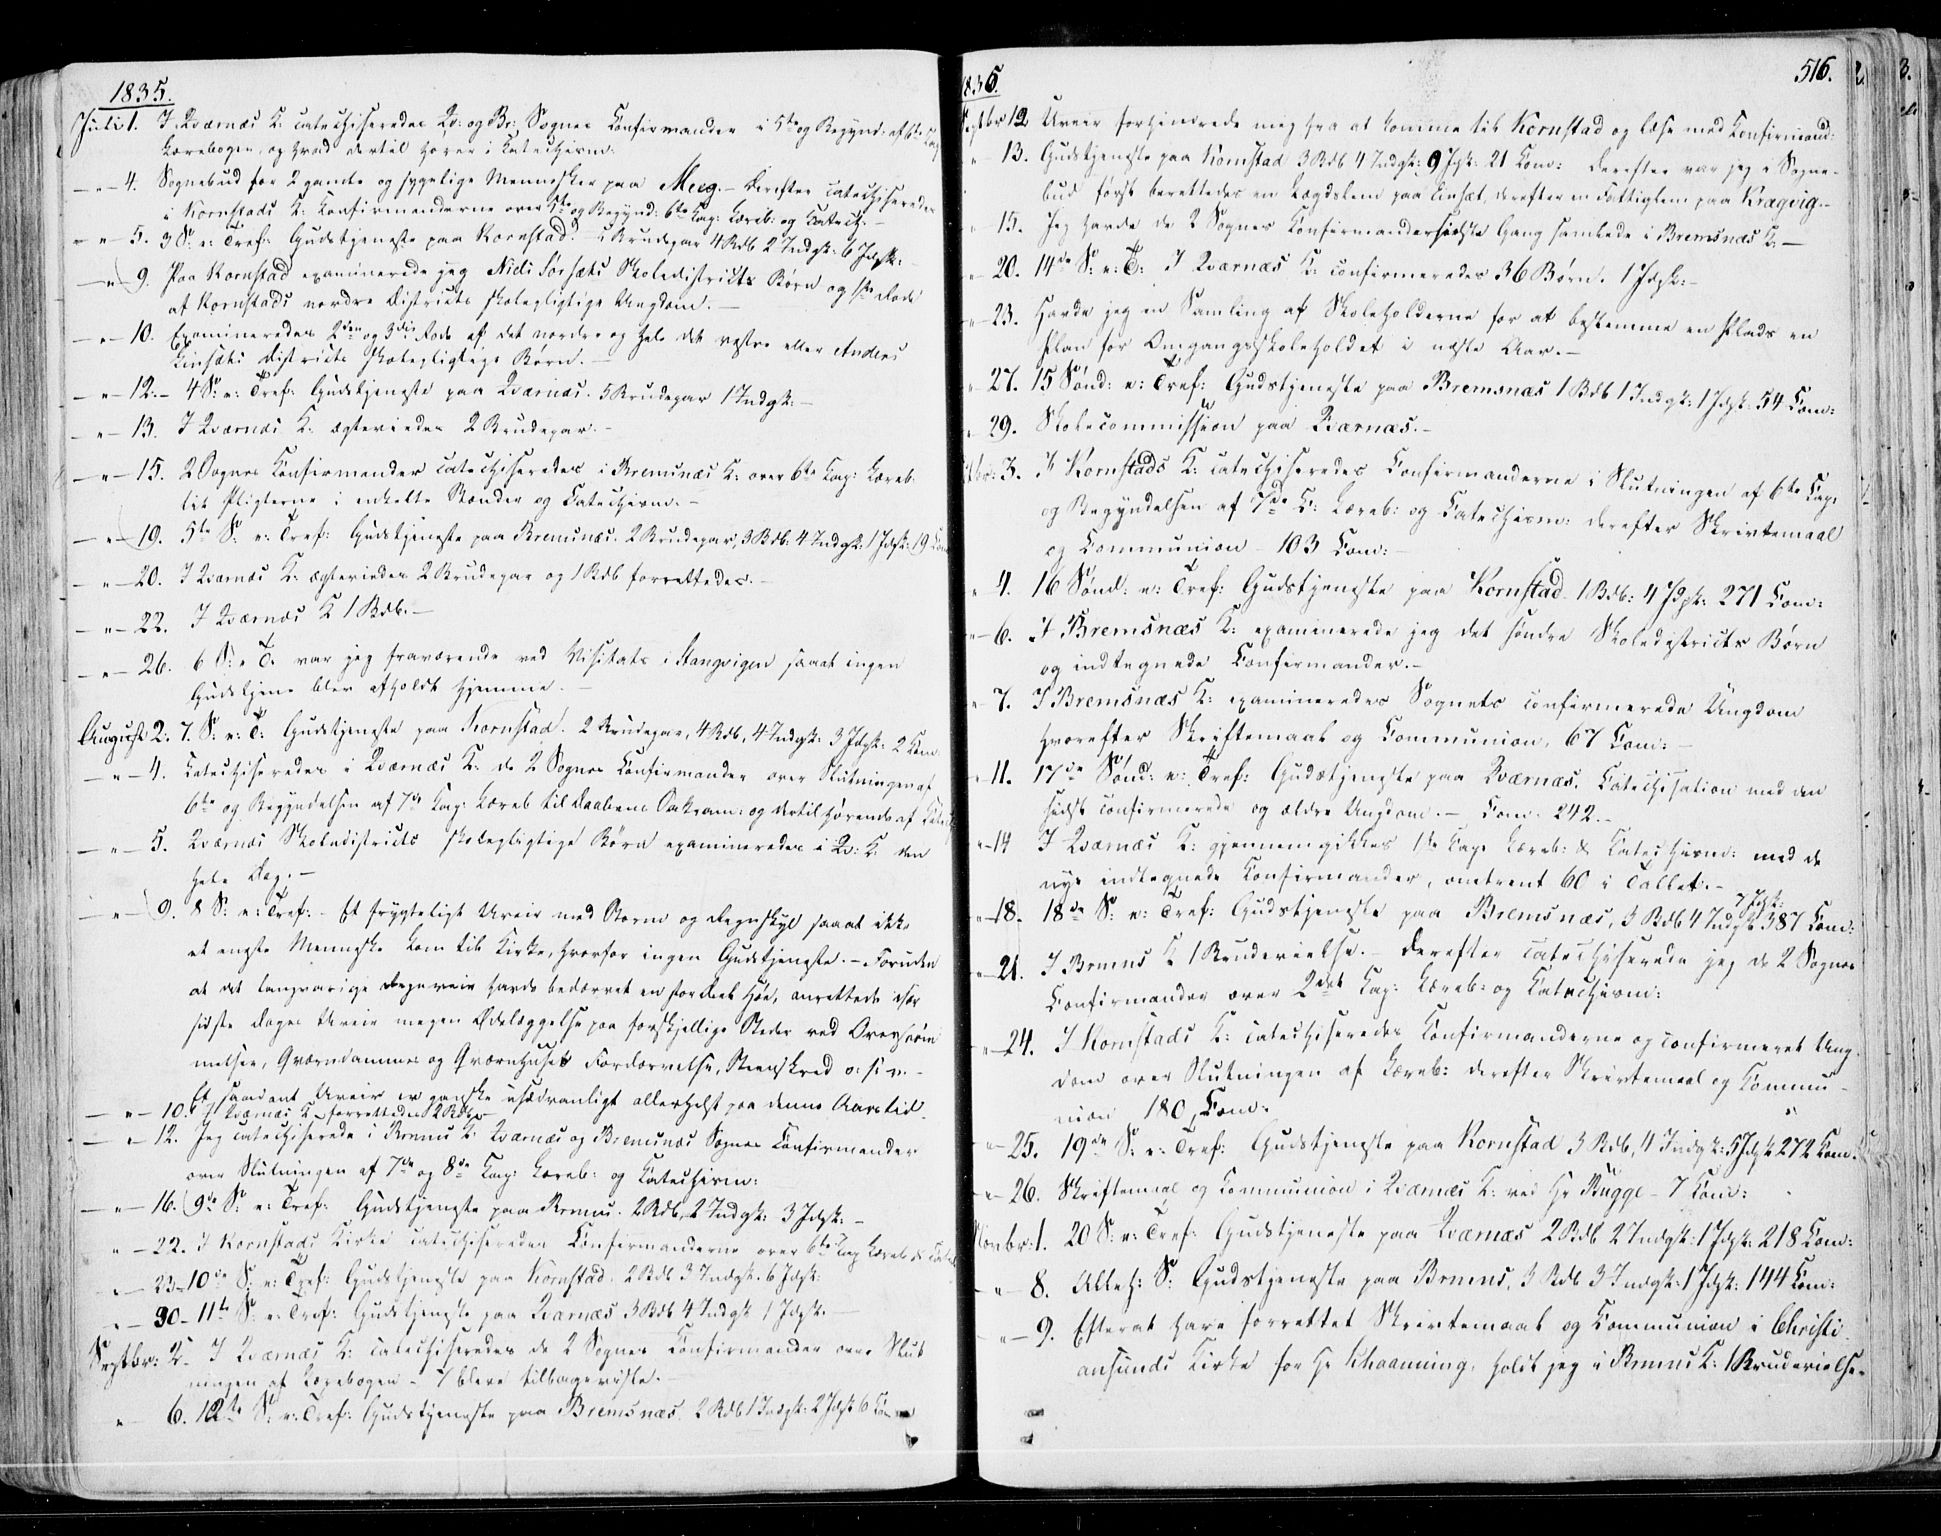 1835.
Juli 1. I Qværnæs K: catechiseredes Qv: og Br: Sognes Confirmander i 5te og Begynd: af 6te Cap
Lærebogen, og hvad dertil hører i Catechism:
—"— 4. Sognebud for 2 gamle og sygelige Mennesker paa Meeg. — Derefter catechiseredes
i Kornstads K: Confirmanderne over 5te og Begynd: 6te Cap: Læreb: og Catech: —
" — 5. 3 S: e: Tref: Gudstjeneste paa Kornstad. — 1 Brudepar 4 Bdb 2 Indgk: 6 Jdgk: —
—"— 9. Paa Kornstad examinerede jeg Niels Sørsæts Skoledistricts Børn og 1ste Rode
af Kornstads nordre Districts skolepligtige Ungdom. —
—"— 10. Examineredes 2den og 3die Rode af det nordre og hele det vestre eller Anders
Linsæts Districts skolepligtige Børn. —
—"— 12. — 4 S: e: Tref: Gudstjeneste paa Qværnæs. 5 Brudepar 1 Indgk: —
—"— 13. I Qværnæs K. ægteviedes 2 Brudepar. —
—"— 15. 2 Sognes Confirmander catechiseredes i Bremsnæs K: over 6te Cap: Læreb:
til Pligterne i enkelte Stænder og Catechism. —
—"— 19. 5te S: e: Tref: Gudstjeneste paa Bremsnæs. 2 Brudepar, 3 Bdb: 4 Indgk: 1 Jdgk: 19 Com
—"— 20. I Qværnæs K: ægteviedes 2 Brudepar og 1 Bdb forrettedes. —
—"— 22. I Qværnæs K 1 Bdb. —
—"— 26. 6 S: e T. var jeg fraværende ved Visitats i Stangvigen saaat ingen
Gudstjen: blev afholdt hjemme. —
August 2. 7. S: e: T: Gudstjeneste paa Kornstad. 2 Brudepar, 4 Bdb, 4 Indgk: 3 Jdgk: 2 Com
—"— 4. Catechiseredes i Qværnæs K: de 2 Sognes Confirmander over Slutningen af
6te og Begyndelsen af 7de Cap: Læreb til Daabens Sakram: og dertil hørende af Catech
—"— 5. Qværnæs Skoledistricts skolepligtige Børn examineredes i Qv: K: den
hele Dag. —
—"— 9. 8 S: e: Tref: — Et frygteligt Uveir med Storm og Regnskyl saaat ikke
et eneste Menneske kom til Kirke, hvorfor ingen Gudstjeneste. — Foruden
at det langvarige Regnveir havde bedærvet en stor Deel Høe, anrettede især
sidste Dages Uveir megen Ødelæggelse paa forskjellige Steder ved Oversvøm
melser, Qværndammes og Qværnhuses Fordærvelse, Steenskred o: s: v: —
Et saadant Uveir er ganske usædvanligt allerhelst paa denne Aarstid
—"— 10. I Qværnæs K. forrettedes 2 Bdb. —
—"— 12. Jeg catechiserede i Bremsn: K. Qværnæs og Bremsnæs Sognes Confirmander
over Slutningen af 7de og 8de Cap: Læreb: og Catechism:
—"— 16. 9de S: e: Tref: Gudstjeneste paa Bremsn. 2 Bdb, 2 Indgk: 3 Jdgk: —
" — 22. I Kornstads Kirke catechiseredes Confirmanderne over 6te Cap Læreb & Catech
" — 23 — 10de S: e: Tref: Gudstjeneste paa Kornstad. 2 Bdb 3 Indgk. 6 Jdgk:
" — 30 — 11te S: e: Tref: Gudstjeneste paa Qværnæs 3 Bdb 4 Indgk 1 Jdgk. —
Septbr: 2 — I Qværnæs K: catechiseredes de 2 Sognes Confirmander over Slut
ningen af Lærebogen — 7 bleve tilbageviste. —
" 6. 12te S: e: Tref: Gudstjeneste paa Bremsnæs. 2 Bdb 1 Indgk: 2 Jdgk 6 Com
1835.
516.
Septbr 12 Uveir forhindrede mig fra at komme til Kornstad og læse med Confirmand:
" — 13. Gudstjeneste paa Kornstad 3 Bdb 4 Indgk: 9 Jdgk: 21 Com: Derefter var jeg i Sogne-
bud først berettedes en Lægdslem paa Linsæt, derefter en Fattiglem paa Kragvig. —
" 15. Jeg havde de 2 Sognes Confirmander sidste Gang samlede i Bremsnæs K. —
" 20. 14de S: e: T: I Qværnæs K: confirmeredes 36 Børn. 1 Jdgk: —
" 23. Havde jeg en Samling af Skoleholderne for at bestemme en Plads en
Plan for Omgangsskoleholdet i næste Aar. —
" 27. 15 Sønd: e: Tref: Gudstjeneste paa Bremsnæs 1 Bdb 1 Indgk: 1 Jdgk 54 Com:
" 29. Skolecommission paa Qværnæs. —
3. I Kornstads K: catechiseredes Confirmanderne i Slutningen af 6te Cap:
og Begyndelsen af 7de C: Læreb: og Catechism: derefter Skriftemaal
og Communion — 103 Com: —
" 4. 16 Sønd: e: Tref: Gudstjeneste paa Kornstad. 1 Bdb: 4 Jdgk: 271 Com:
" — 6. I Bremsnæs K: examinerede jeg det søndre Skoledistricts Børn
og indtegnede Confirmander. —
" 7. I Bremsnæs K: examineredes Sognets confirmerede Ungdom
hvorefter Skriftemaal og Communion, 67 Com: —
" 11. 17de Sønd: e: Tref: Gudstjeneste paa Qværnæs. Catechisation med den
sidst confirmerede og ældre Ungdom. — Com: 242. —
" — 14 I Qværnæs K: gjennemgikkes 1ste Cap. Læreb: & Catechism: med de
nys indtegnede Confirmander, omtrent 60 i Tallet. —
" — 18. 18de S: e: Tref: Gudstjeneste paa Bremsnæs, 3 Bdb 4 Indgk 7 Jdgk: 387 Com:
" — 21. I Bremsns K 1 Brudevielse. — Derefter catechiserede jeg de 2 Sognes
Confirmander over 2det Cap: Læreb: og Catechism:
" — 24. I Kornstads K: catechiseredes Confirmanderne og confirmeret Ung-
dom over Slutningen af Læreb: derefter Skriftemaal og Commu-
nion 180 Com:
" — 25. 19de S: e: Tref: Gudstjeneste paa Kornstad 3 Bdb, 4 Indgk: 5 Jdgk 272 Com.
" — 26. Skriftemaal og Communion i Qværnæs K: ved Hr Bugge — 7 Com:
Novbr: 1. 20 S: e: Tref: Gudstjeneste paa Qværnæs 2 Bdb 2 Indgk: 1 Jdgk: 218 Com:
" — 8. Alleh: S: Gudstjeneste paa Bremsns, 3 Bdb 3 Indgk: 1 Jdgk: 144 Com:
" — 9. Efterat have forrettet Skriftemaal og Communion i Christi-
ansunds Kirke for Hr Schaanning, holdt jeg i Bremsns K: 1 Brudevielse.